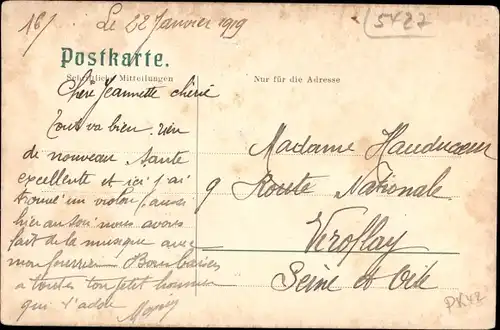 16/ Le 22 Janvier 1919
5427
Postkarte.
Schriftliche Mitteilungen
Nur für die Adresse
Chère Jeannette chérie
Tout va bien. rien
de nouveau. Santé
excellente et ici j'ai
trouvé un violon
hier au soir nous avons
fait de la musique avec
mon fourrier. Bons baisers
a toutes ton petit homme
qui t'adore
Madame Hauducoeur
9 Route Nationale
Viroflay
Seine et Oise
PK42